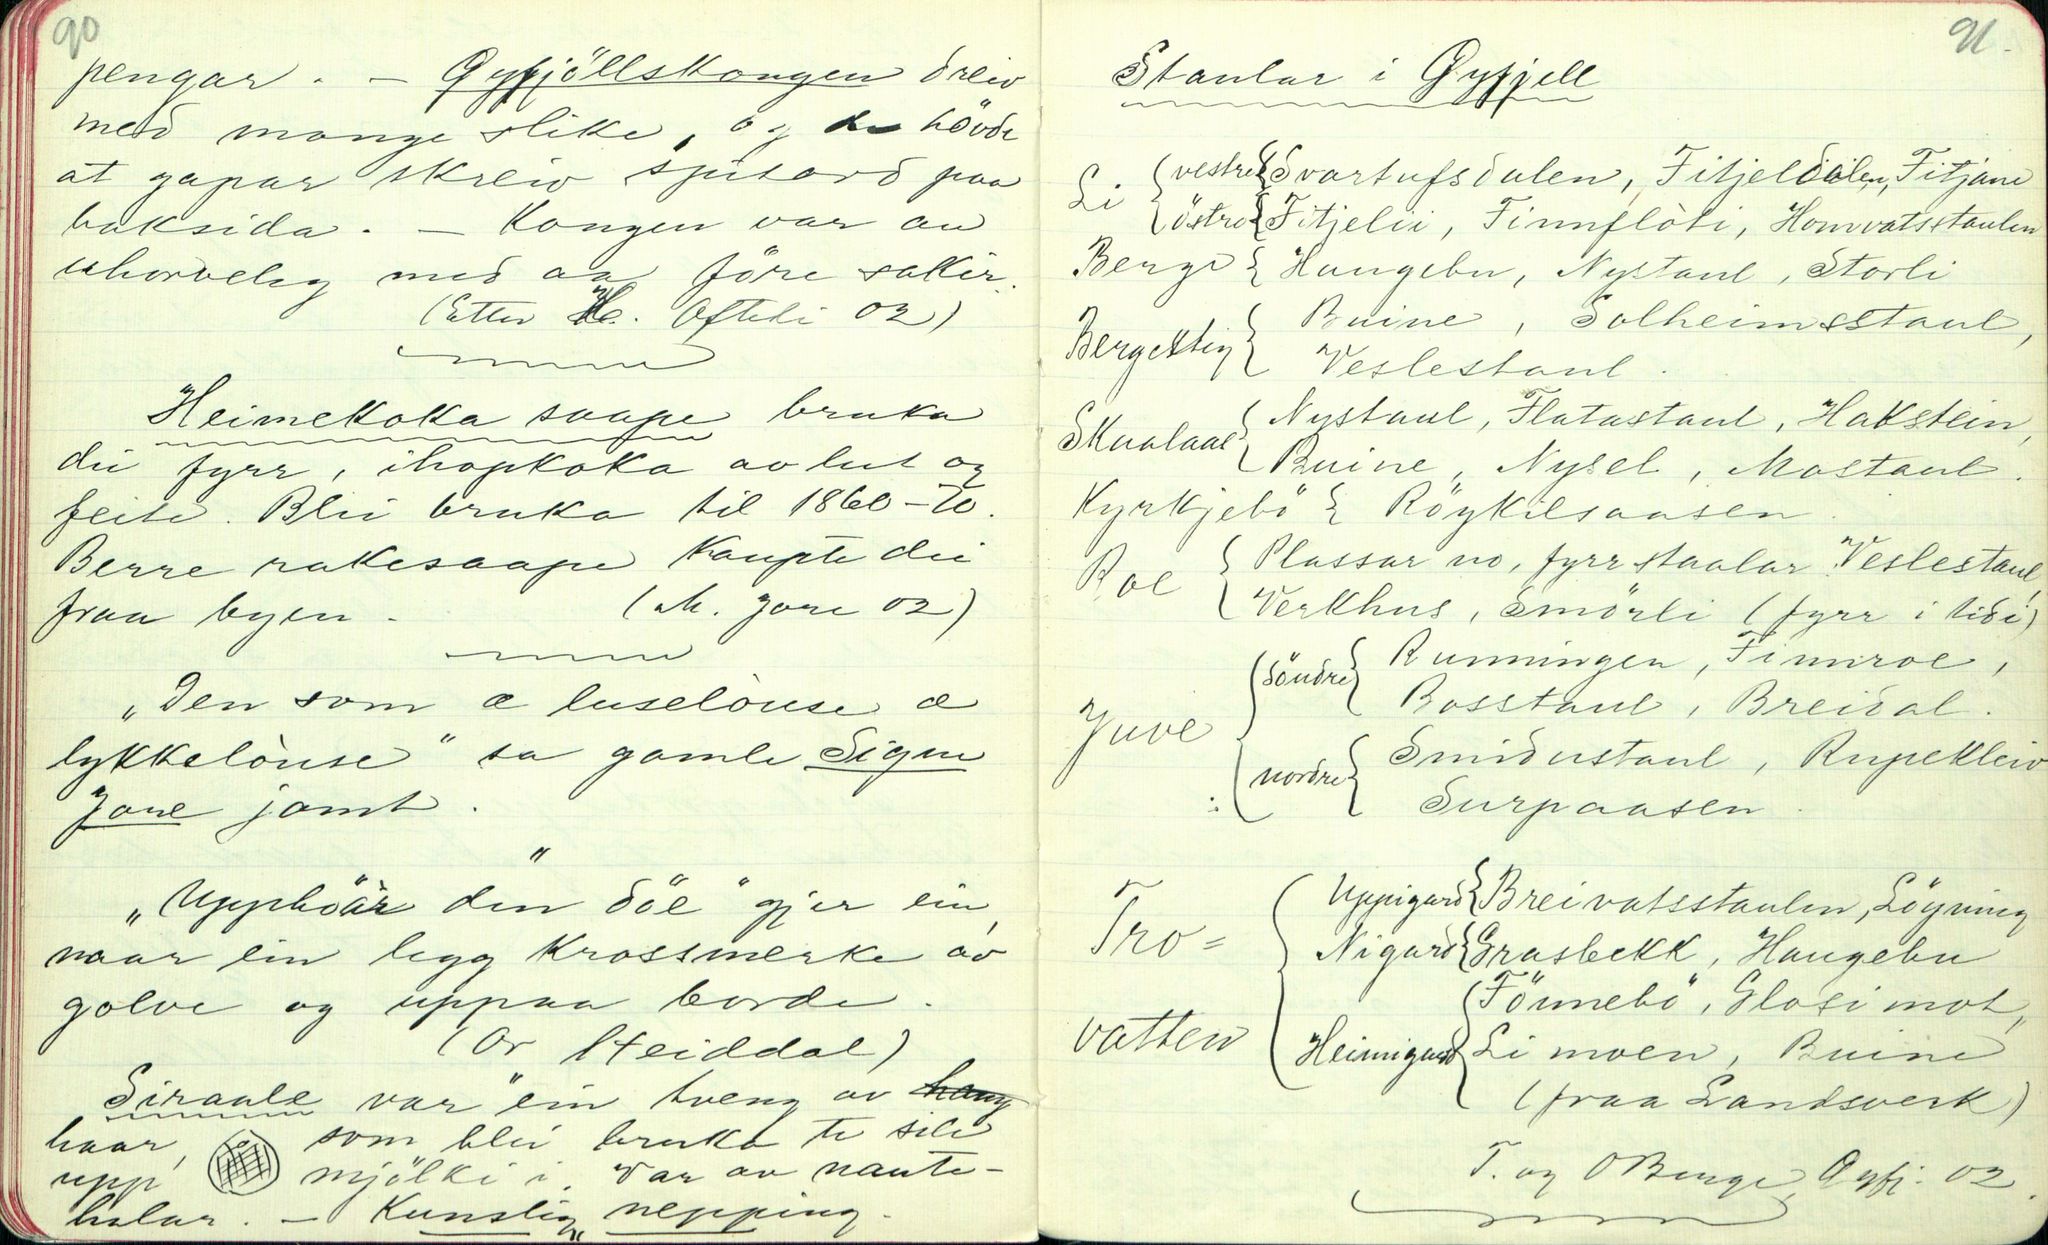 90
pengar. — Gyfjöllskongen dreiv
med mange slike, og de hövde
at gapar skreiv spitord paa
baksida. — Kongen var au
uhorveleg med aa före sakir.
(Etter H. Oftedi 02)
Heimekoka saape bruka
dii fyrr, ihopkoka av lut og
feite. Blei bruka til 1860-70.
Berre rakesaape kaupte dii
fraa byen. (M. Jore 02)
„Den som æ luselòuse æ
lykkelòuse" sa gamle Signe
Jore jamt.
"
„Upphöar den döe" gjer ein,
naar ein legg krossmerke av
golve og uppaa borde.
(Or Heiddal)
Siraale var ein tveng av
haar, som blei bruka te sile
upp mjölki i. Var av naute-
halar. — Kunstig nepping.
91.
Staular i Gyfjell
Li { vestre { Svartufsdalen, Fitjeldalen, Fitjane
östre { Fitjelii, Finnflòti, Homvatsstaulen
Berge { Haugebu, Nystaul, Storli
Bergestig { Buine, Solheimsstaul,
Veslestaul.
Skaalaal { Nystaul, Flatastaul, Hakstein,
Buine, Nysel, Mostaul.
Kyrkjebö { Röykilsaasen.
Roe { Plassar no, fyrr staular Veslestaul,
Verkhus, Smörli (fyrr i tidi)
Juve { söndre { Runningen, Finnroe,
Bosstaul, Breidal.
nordre { Smidustaul, Rupekleiv
Surpaasen.
Tro=
vatten { Uppigard { Breivatsstaulen, Löyning
Nigard { Grasbekk, Haugebu
Heimigard { Fönnebö, Glosimot,
Limoen, Buine
(fraa Landsverk)
T. og O Berge, Gyfj. 02.